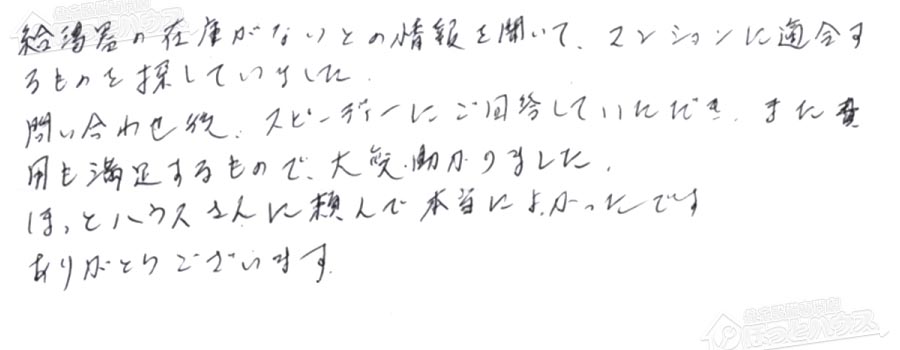 給湯器の在庫がないとの情報を聞いて、マンションに適合す
るものを探していました.
問い合わせ後、スピーディーにご回答していただき、また費
用も満足するもので、大変助かりました.
ほっとハウスさんに頼んで本当によかったです
ありがとうございます.
ほっとハウス